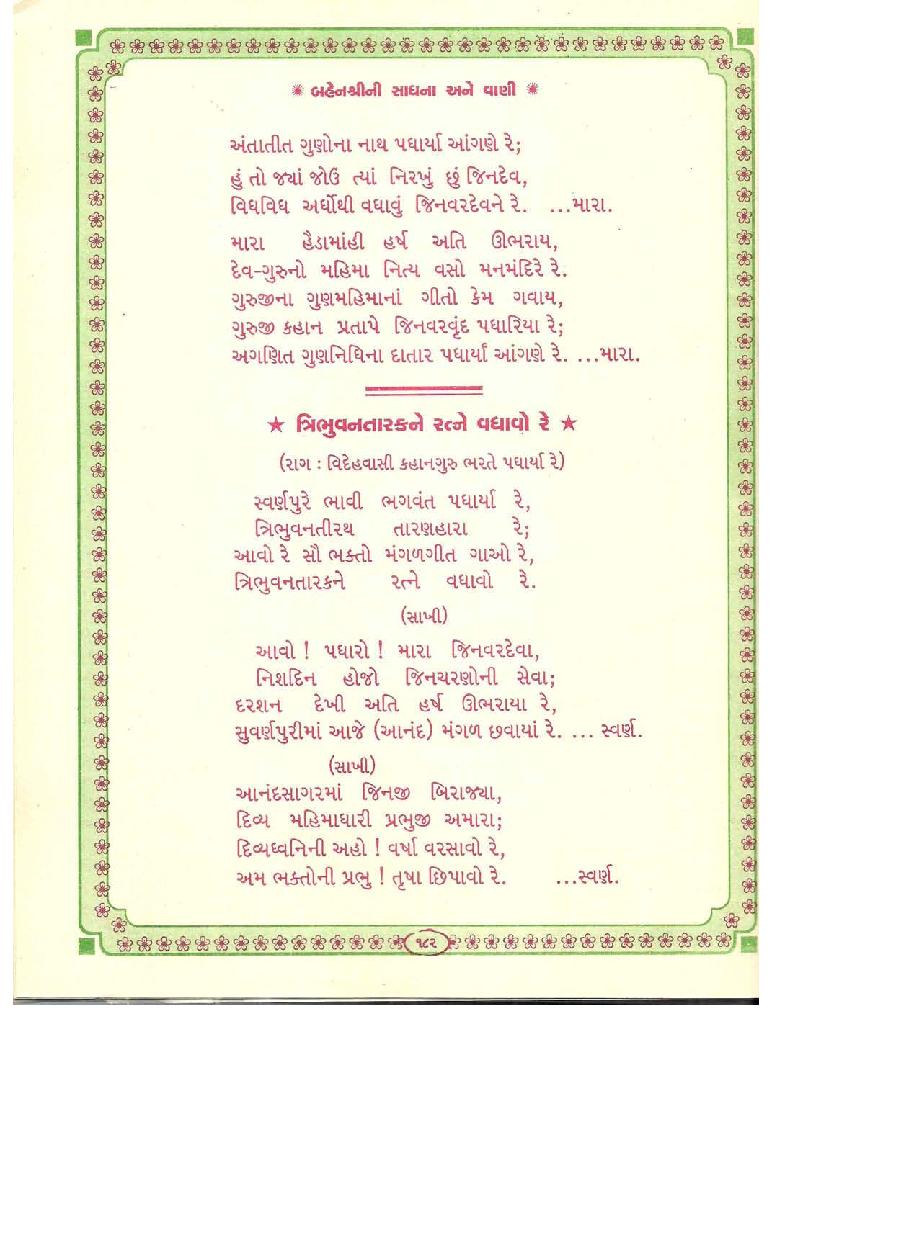 ✺ બહેનશ્રીની સાધના અને વાણી ✺
અંતાતીત ગુણોના નાથ પધાર્યા આંગણે રે;
હું તો જ્યાં જોઉં ત્યાં નિરખું છું જિનદેવ,
વિધવિધ અર્ઘોથી વધાવું જિનવરદેવને રે. ...મારા.
મારા હૈડામાંહી હર્ષ અતિ ઊભરાય,
દેવ-ગુરુનો મહિમા નિત્ય વસો મનમંદિરે રે.
ગુરુજીના ગુણમહિમાનાં ગીતો કેમ ગવાય,
ગુરુજી કહાન પ્રતાપે જિનવરવૃંદ પધારિયા રે;
અગણિત ગુણનિધિના દાતાર પધાર્યાં આંગણે રે. ...મારા.
★ ત્રિભુવનતારકને રત્ને વધાવો રે ★
(રાગ : વિદેહવાસી કહાનગુરુ ભરતે પધાર્યા રે)
સ્વર્ણપુરે ભાવી ભગવંત પધાર્યા રે,
ત્રિભુવનતીરથ તારણહારા રે;
આવો રે સૌ ભક્તો મંગળગીત ગાઓ રે,
ત્રિભુવનતારકને રત્ને વધાવો રે.
(સાખી)
આવો ! પધારો ! મારા જિનવરદેવા,
નિશદિન હોજો જિનચરણોની સેવા;
દરશન દેખી અતિ હર્ષ ઊભરાયા રે,
સુવર્ણપુરીમાં આજે (આનંદ) મંગળ છવાયાં રે. ... સ્વર્ણ.
(સાખી)
આનંદસાગરમાં જિનજી બિરાજ્યા,
દિવ્ય મહિમાધારી પ્રભુજી અમારા;
દિવ્યધ્વનિની અહો ! વર્ષા વરસાવો રે,
અમ ભક્તોની પ્રભુ ! તૃષા છિપાવો રે. ...સ્વર્ણ.
૧૮૨